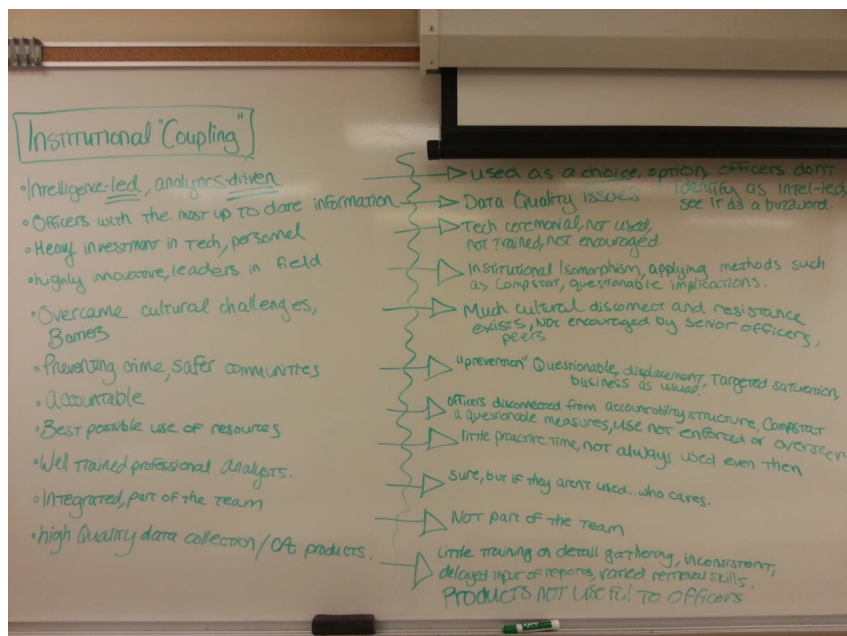 Institutional "Coupling"
• Intelligence-led, analytics-driven
• Officers with the most up to date information
• Heavy investment in Tech, personel
• highly innovative, leaders in field
• Overcame cultural challenges,
Barriers
• Preventing crime, safer communities
• Accountable
• Best possible use of resources
• Well trained professional analysts.
• Integrated, part of the team
• high Quality data collection/CA products.
used as a choice, option officers don't
identify as intel-led,
see it as a buzzword.
Data Quality issues
Tech ceremonial, not used,
not trained, not encouraged
Institutional Isomorphism, applying methods such
as Compstat, questionable implications.
Much cultural disconnect and resistance
exists, Not encouraged by senior officers,
peers
"prevention" Questionable, displacement, Targeted saturation,
business as usual.
officers disconnected from accountability structure, Compstat
a questionable measures, use not enforced or overseen
little proactive time, not always used even then
sure, but if they aren't used... who cares.
Not part of the team
Little training on detail gathering, inconsistent,
delayed input of reports, varied retrieval skills.
Products not useful to officers